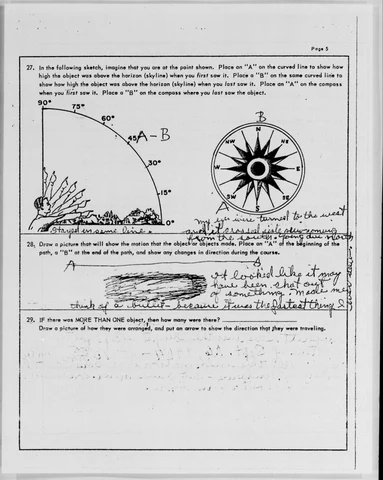 Page 5
27. In the following sketch, imagine that you are at the point shown. Place an "A" on the curved line to show how
high the object was above the horizon (skyline) when you first saw it. Place a "B" on the same curved line to
show how high the object was above the horizon (skyline) when you last saw it. Place an "A" on the compass
when you first saw it. Place a "B" on the compass where you last saw the object.
90°
75°
60°
45°
A-B
30°
15°
0°
Stayed in same line.
B
N
NE
E
SE
S
SW
W
NW
A
my eyes were turned to the west
and it crossed side
from the south - going due north
28. Draw a picture that will show the motion that the object or objects made. Place an "A" at the beginning of the
path, a "B" at the end of the path, and show any changes in direction during the course.
A B
It looked like it may
have been shot out
of something. made me
think of a bullet - because it was the fastest thing I
29. IF there was MORE THAN ONE object, then how many were there?
Draw a picture of how they were arranged, and put an arrow to show the direction that they were traveling.